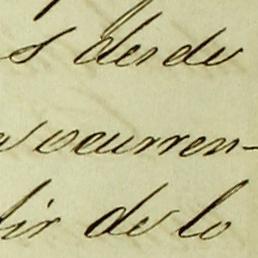 s desde
ocurren-
lir de lo